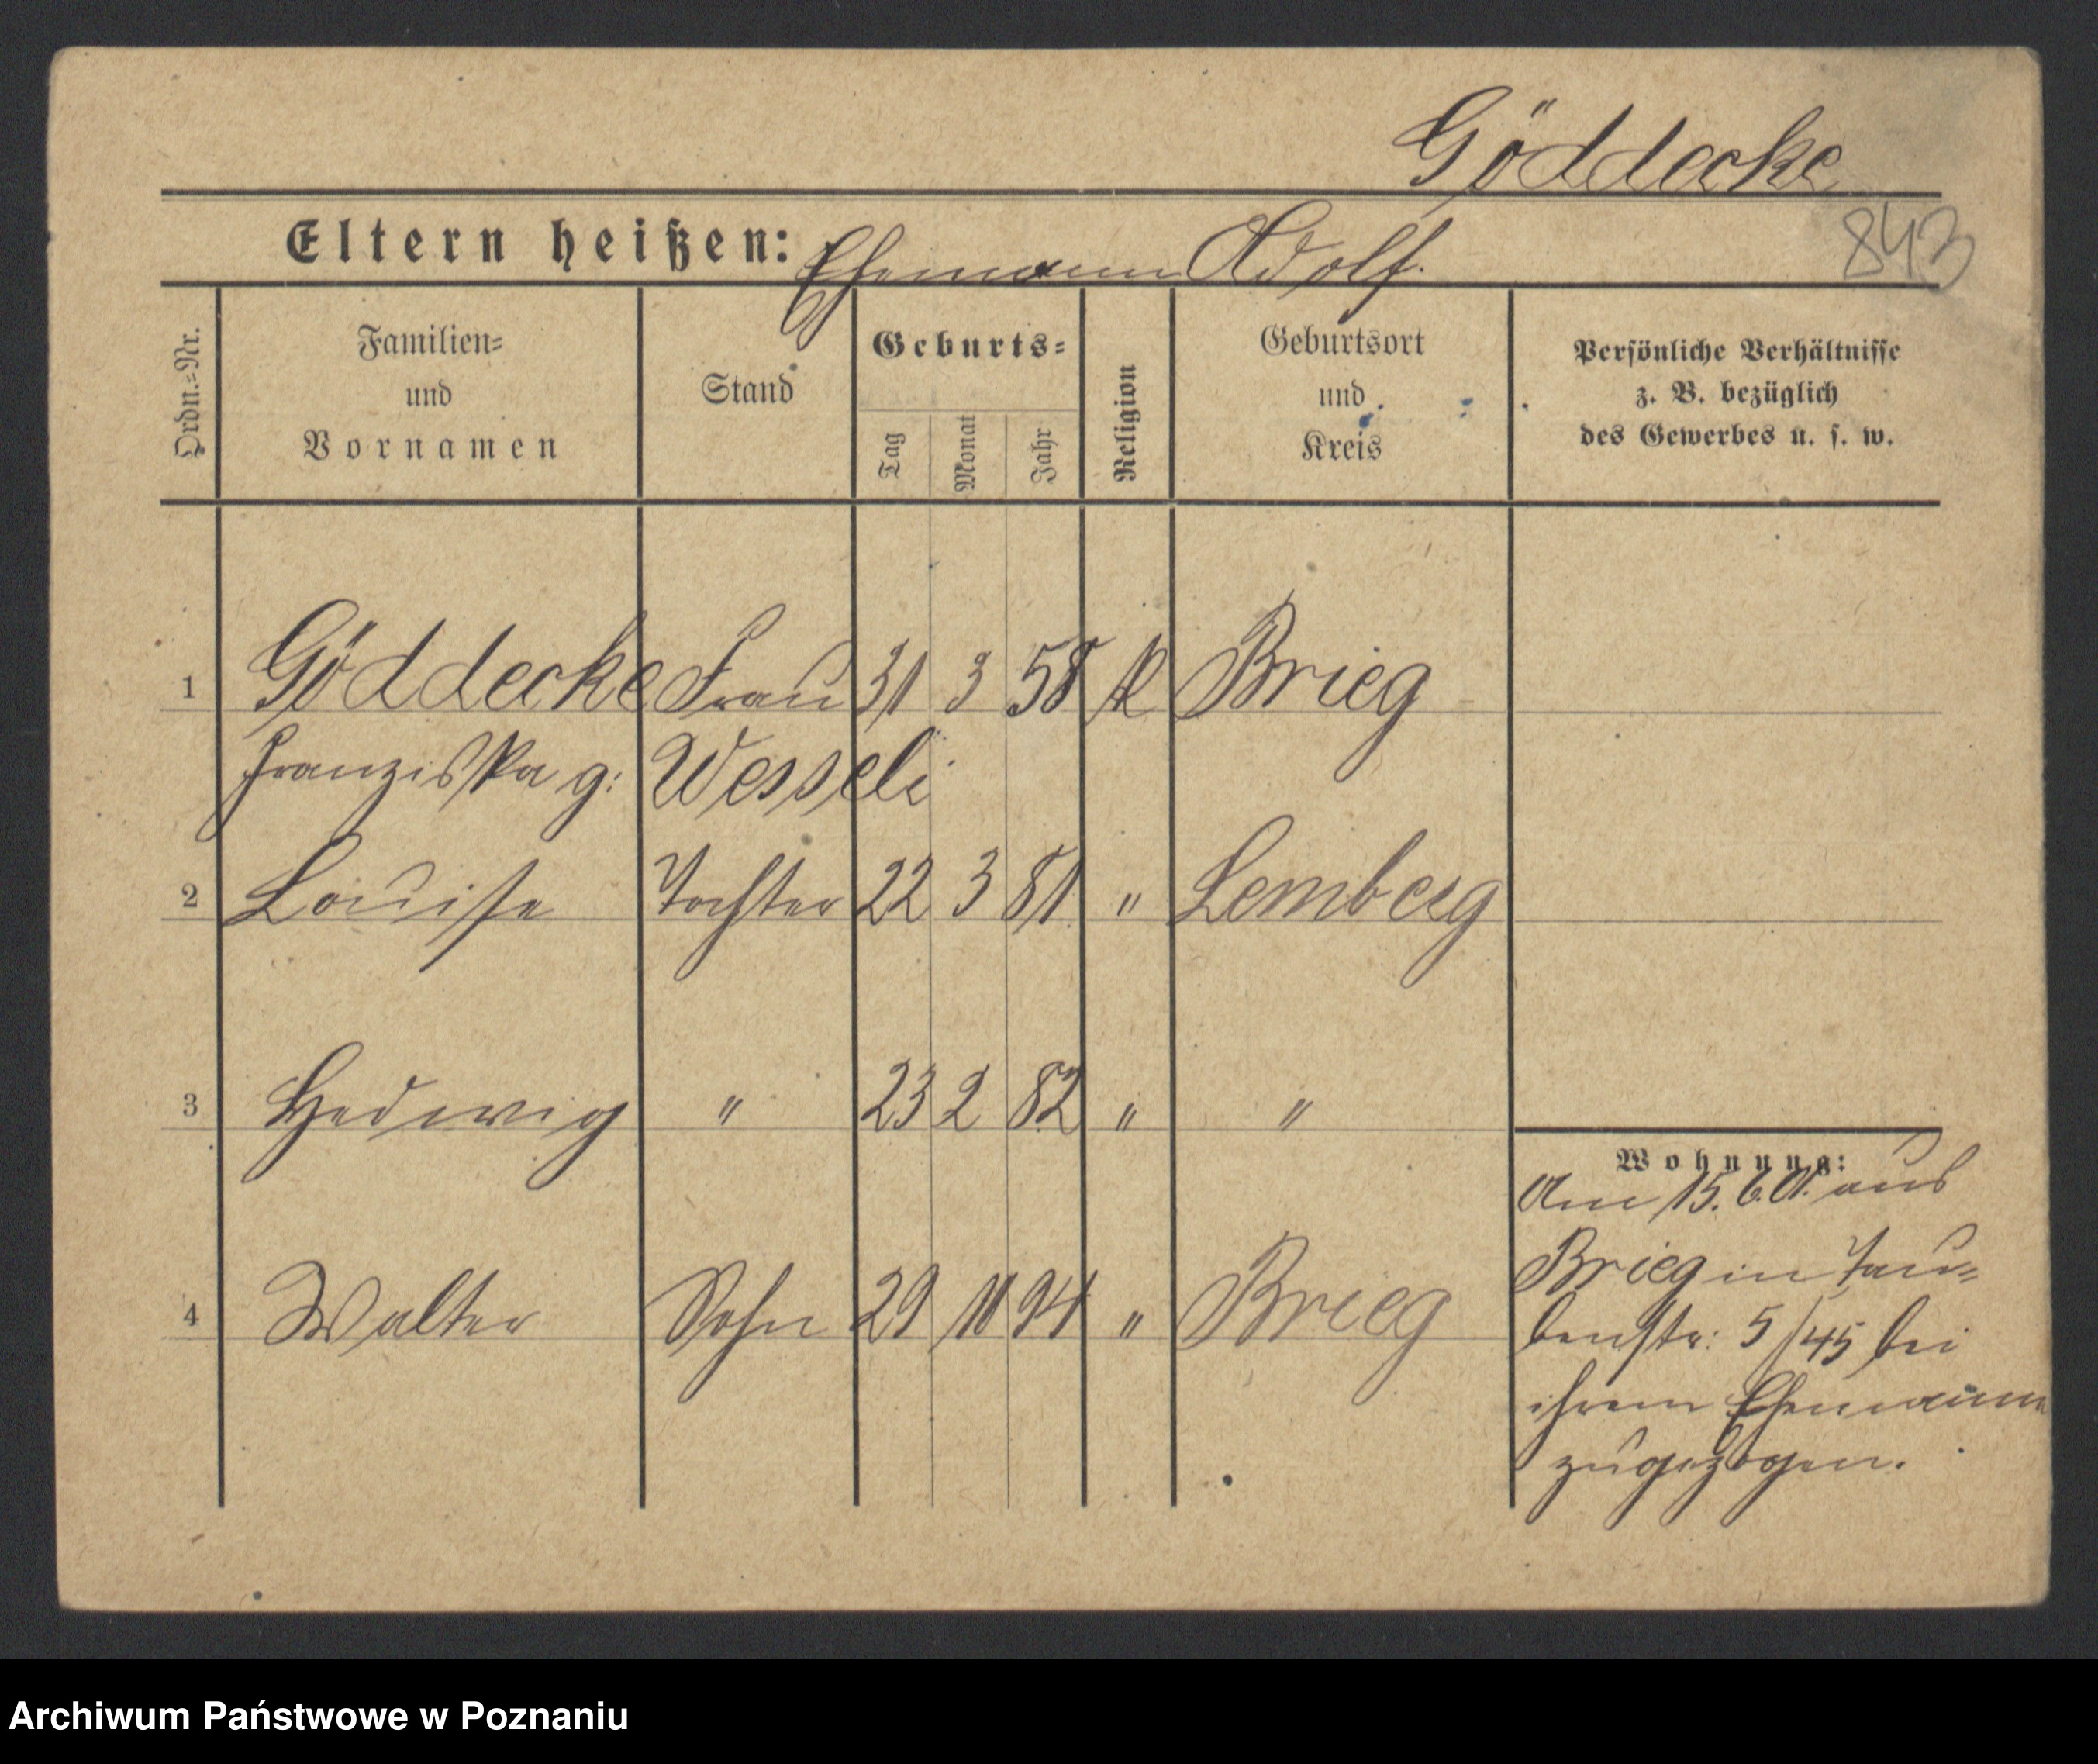 Göddecke
843
Eltern heißen: Ehemann Adolf.
Ordn.=Nr.
Familien= und Vornamen
Stand
Geburts= Tag Monat Jahr
Religion
Geburtsort und Kreis
Persönliche Verhältnisse z. B. bezüglich des Gewerbes u. s. w.
1 Göddecke Frau 31 3 58 K Brieg
Franziska g: Wesseli
2 Louise Tochter 22 3 81 " Lemberg
3 Hedwig " 23 2 82 " "
4 Walter Sohn 29 11 94 " Brieg
Wohnung:
Am 15. 6. 01. aus
Brieg in Tau=
benstr: 5/45 bei
ihrem Ehemann
zugezogen.
Archiwum Państwowe w Poznaniu